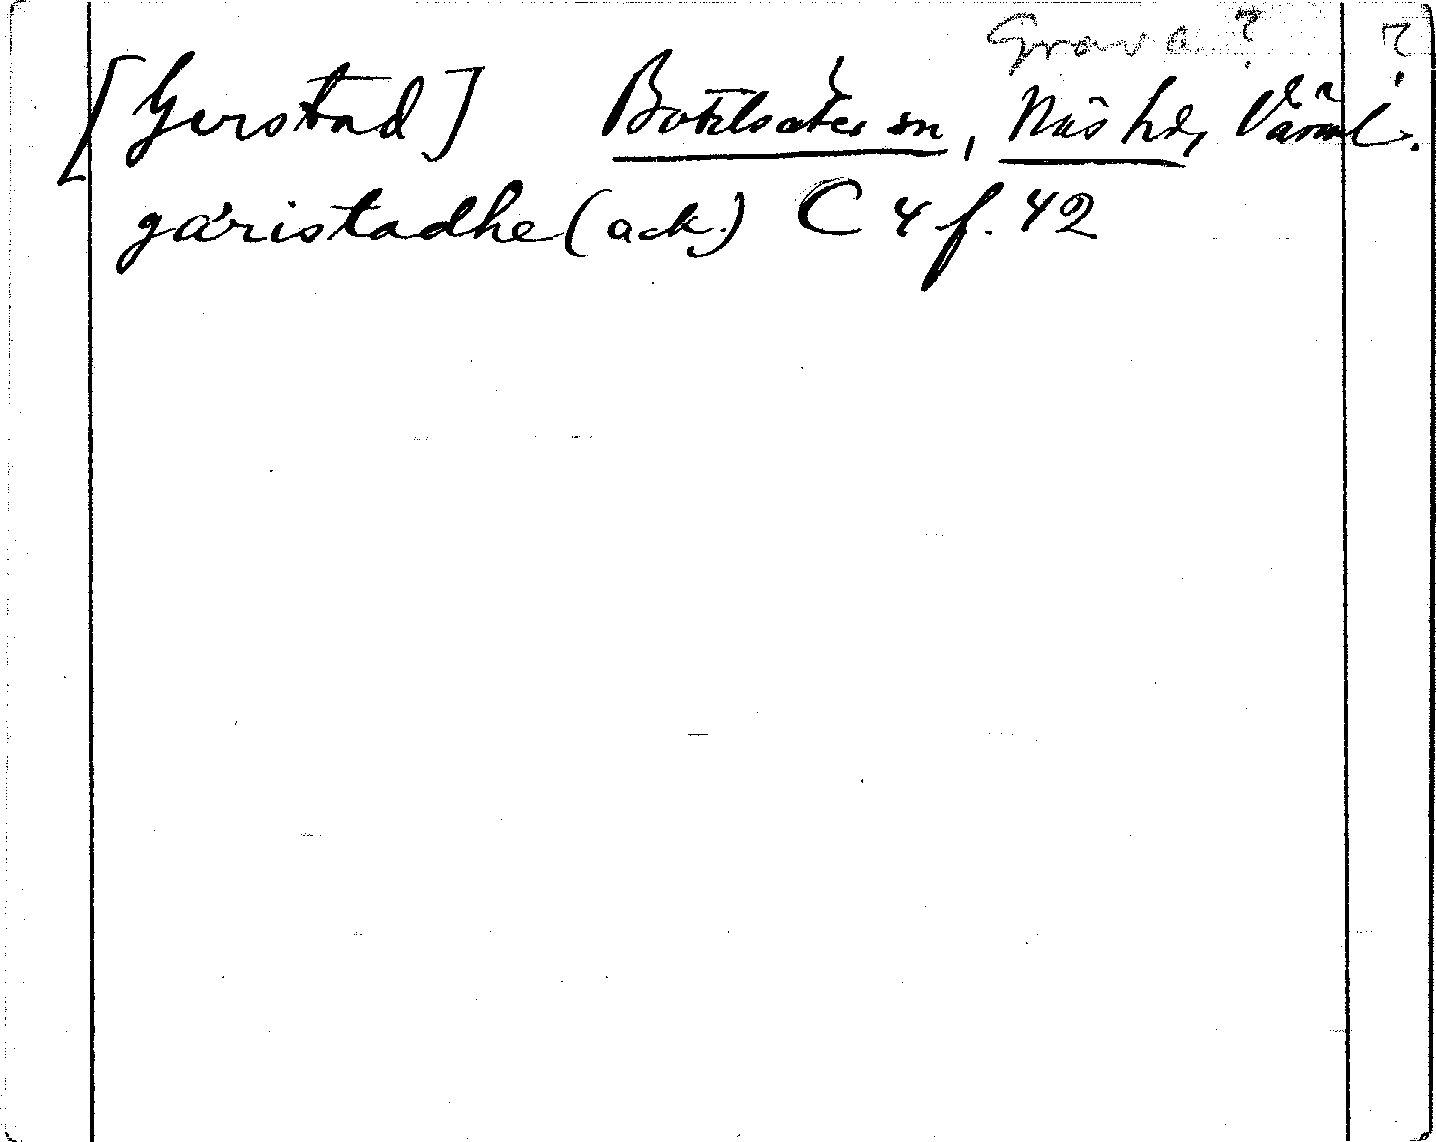 Grava? ?
[Gerstad] Botilsäter sn, Näs hd, Värml.
gáristadhe (ack.) C 4 f. 42